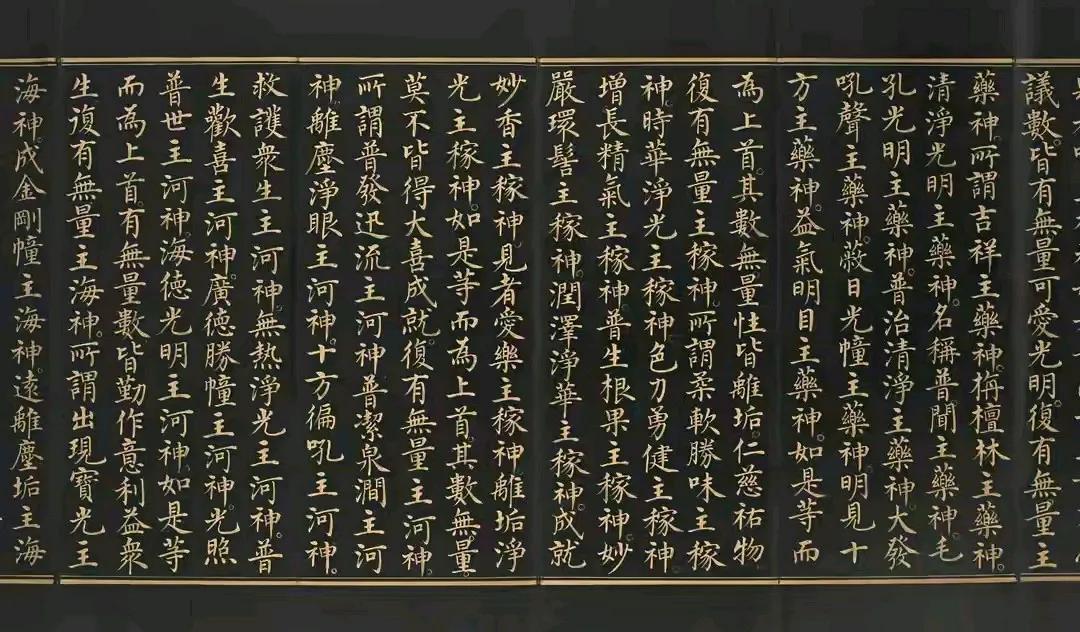 議數。皆有無量可愛光明。復有無量主
藥神。所謂吉祥主藥神。栴檀林主藥神。
清淨光明主藥神。名稱普聞主藥神。毛
孔光明主藥神。普治清淨主藥神。大發
吼聲主藥神。蔽日光幢主藥神。明見十
方主藥神。益氣明目主藥神。如是等而
為上首。其數無量。性皆離垢。仁慈祐物。
復有無量主稼神。所謂柔軟勝味主稼
神。時華淨光主稼神。色力勇健主稼神。
增長精氣主稼神。普生根果主稼神。妙
嚴環髻主稼神。潤澤淨華主稼神。成就
妙香主稼神。見者愛樂主稼神。離垢淨
光主稼神。如是等而為上首。其數無量。
莫不皆得大喜成就。復有無量主河神。
所謂普發迅流主河神。普潔泉澗主河
神。離塵淨眼主河神。十方徧吼主河神。
救護衆生主河神。無熱淨光主河神。普
生歡喜主河神。廣德勝幢主河神。光照
普世主河神。海德光明主河神。如是等
而為上首。有無量數。皆勤作意利益衆
生。復有無量主海神。所謂出現寶光主
海神。成金剛幢主海神。遠離塵垢主海